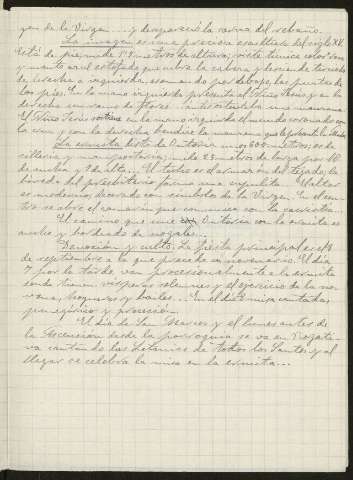 gen de la Virgen.... y desapareció la ruina del rebaño.
La imagen es una preciosa escultura del siglo XV.
Está de pie, mide 1'3 metros de altura; viste túnica color
y manto azul estofado que cubre la cabeza y desciende terciado
de derecha a izquierda, asomando por debajo las puntas de
los pies. En la mano izquierda presenta al Niño Jesús y en la
derecha un ramo de flores. antes ostentaba una manzana.
El Niño Jesús sostiene en la mano izquierda el mundo coronado con
la cruz y con la derecha bendice la manzana que le presenta la Madre
La ermita dista de Ontoria unos 600 metros; es de
sillería y mampostería; mide 23 metros de larga por 10
de ancha y 7 de alta.. El techo es el armazón del tejado; la
bóveda del presbiterio forma una cupulita. El altar
es moderno, decorado con símbolos de la Virgen. En el cen-
tro se abre el camarín que comunica con la sacristía..
El camino que une Ontoria con la ermita es
ancho y bordeado de nogales..
Devoción y culto. La fiesta principal es el 8
de septiembre a la que precede un novenario. El día
7 por la tarde van procesionalmente a la ermita
donde tienen vísperas solemnes y el ejercicio de la no-
vena, hogueras y bailes... En el día 8 misa cantada,
panegírico y procesión.
El día de San Marcos y el lunes antes de
la Ascensión desde la parroquia se va en Rogati-
va cantando las Letanías de todos los Santos y al
llegar se celebra la misa en la ermita...